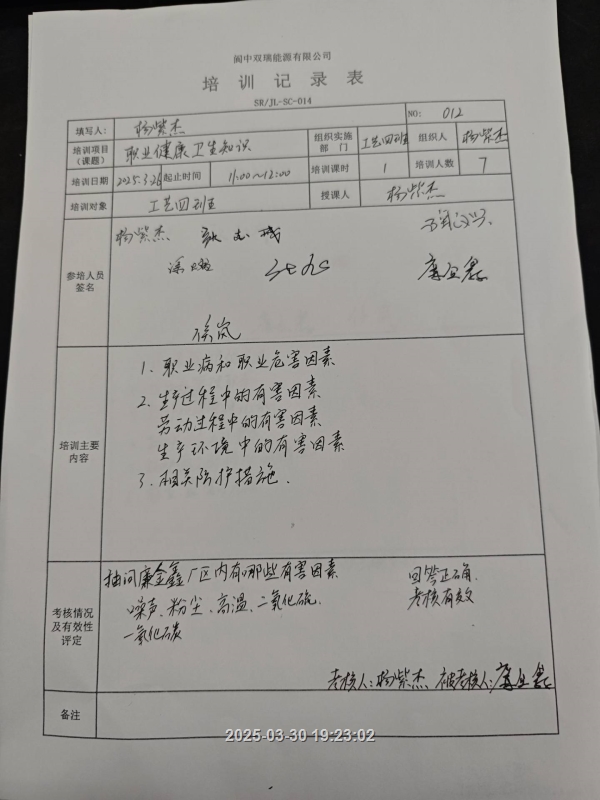 阆中双瑞能源有限公司
培训记录表
SR/JL-SC-014
填写人： 杨紫杰 NO: 012
培训项目（课题） 职业健康卫生知识 组织实施部门 工艺四班 组织人 杨紫杰
培训日期 2025.3.26 起止时间 11:00~12:00 培训课时 1 培训人数 7
培训对象 工艺四班 授课人 杨紫杰
参培人员签名
杨紫杰
侯岚
培训主要内容
1、职业病和职业危害因素
2、生产过程中的有害因素
劳动过程中的有害因素
生产环境中的有害因素
3、相关防护措施.
考核情况及有效性评定
抽问廉金鑫厂区内有哪些有害因素
噪声、粉尘、高温、二氧化硫、
一氧化碳
回答正确.
考核有效
考核人：杨紫杰 被考核人：
备注
2025-03-30 19:23:02